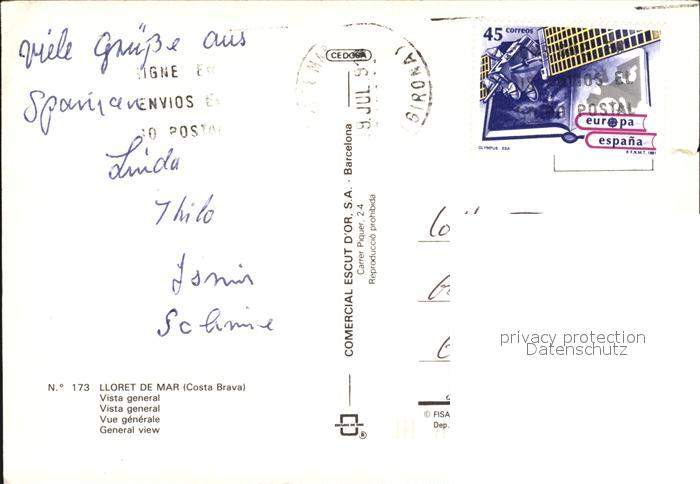 viele Grüße aus
Spanien
Linda
Thilo
IGNE EN
ENVIOS E
GO POSTAL
CEDOSA
9 JUL. 9
(GIRONA)
N.° 173 LLORET DE MAR (Costa Brava)
Vista general
Vista general
Vue générale
General view
COMERCIAL ESCUT D'OR, S.A. - Barcelona
Carrer Piquer, 2-4
Reproducció prohibida
45 correos
europa
españa
OLYMPUS - ESA
F.N.M.T. 1991
POSTAL
privacy protection
Datenschutz
© FISA
Dep.